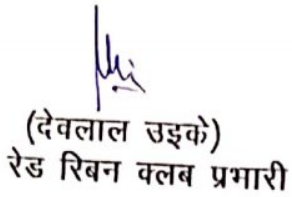 (देवलाल उइके)
रेड रिबन क्लब प्रभारी